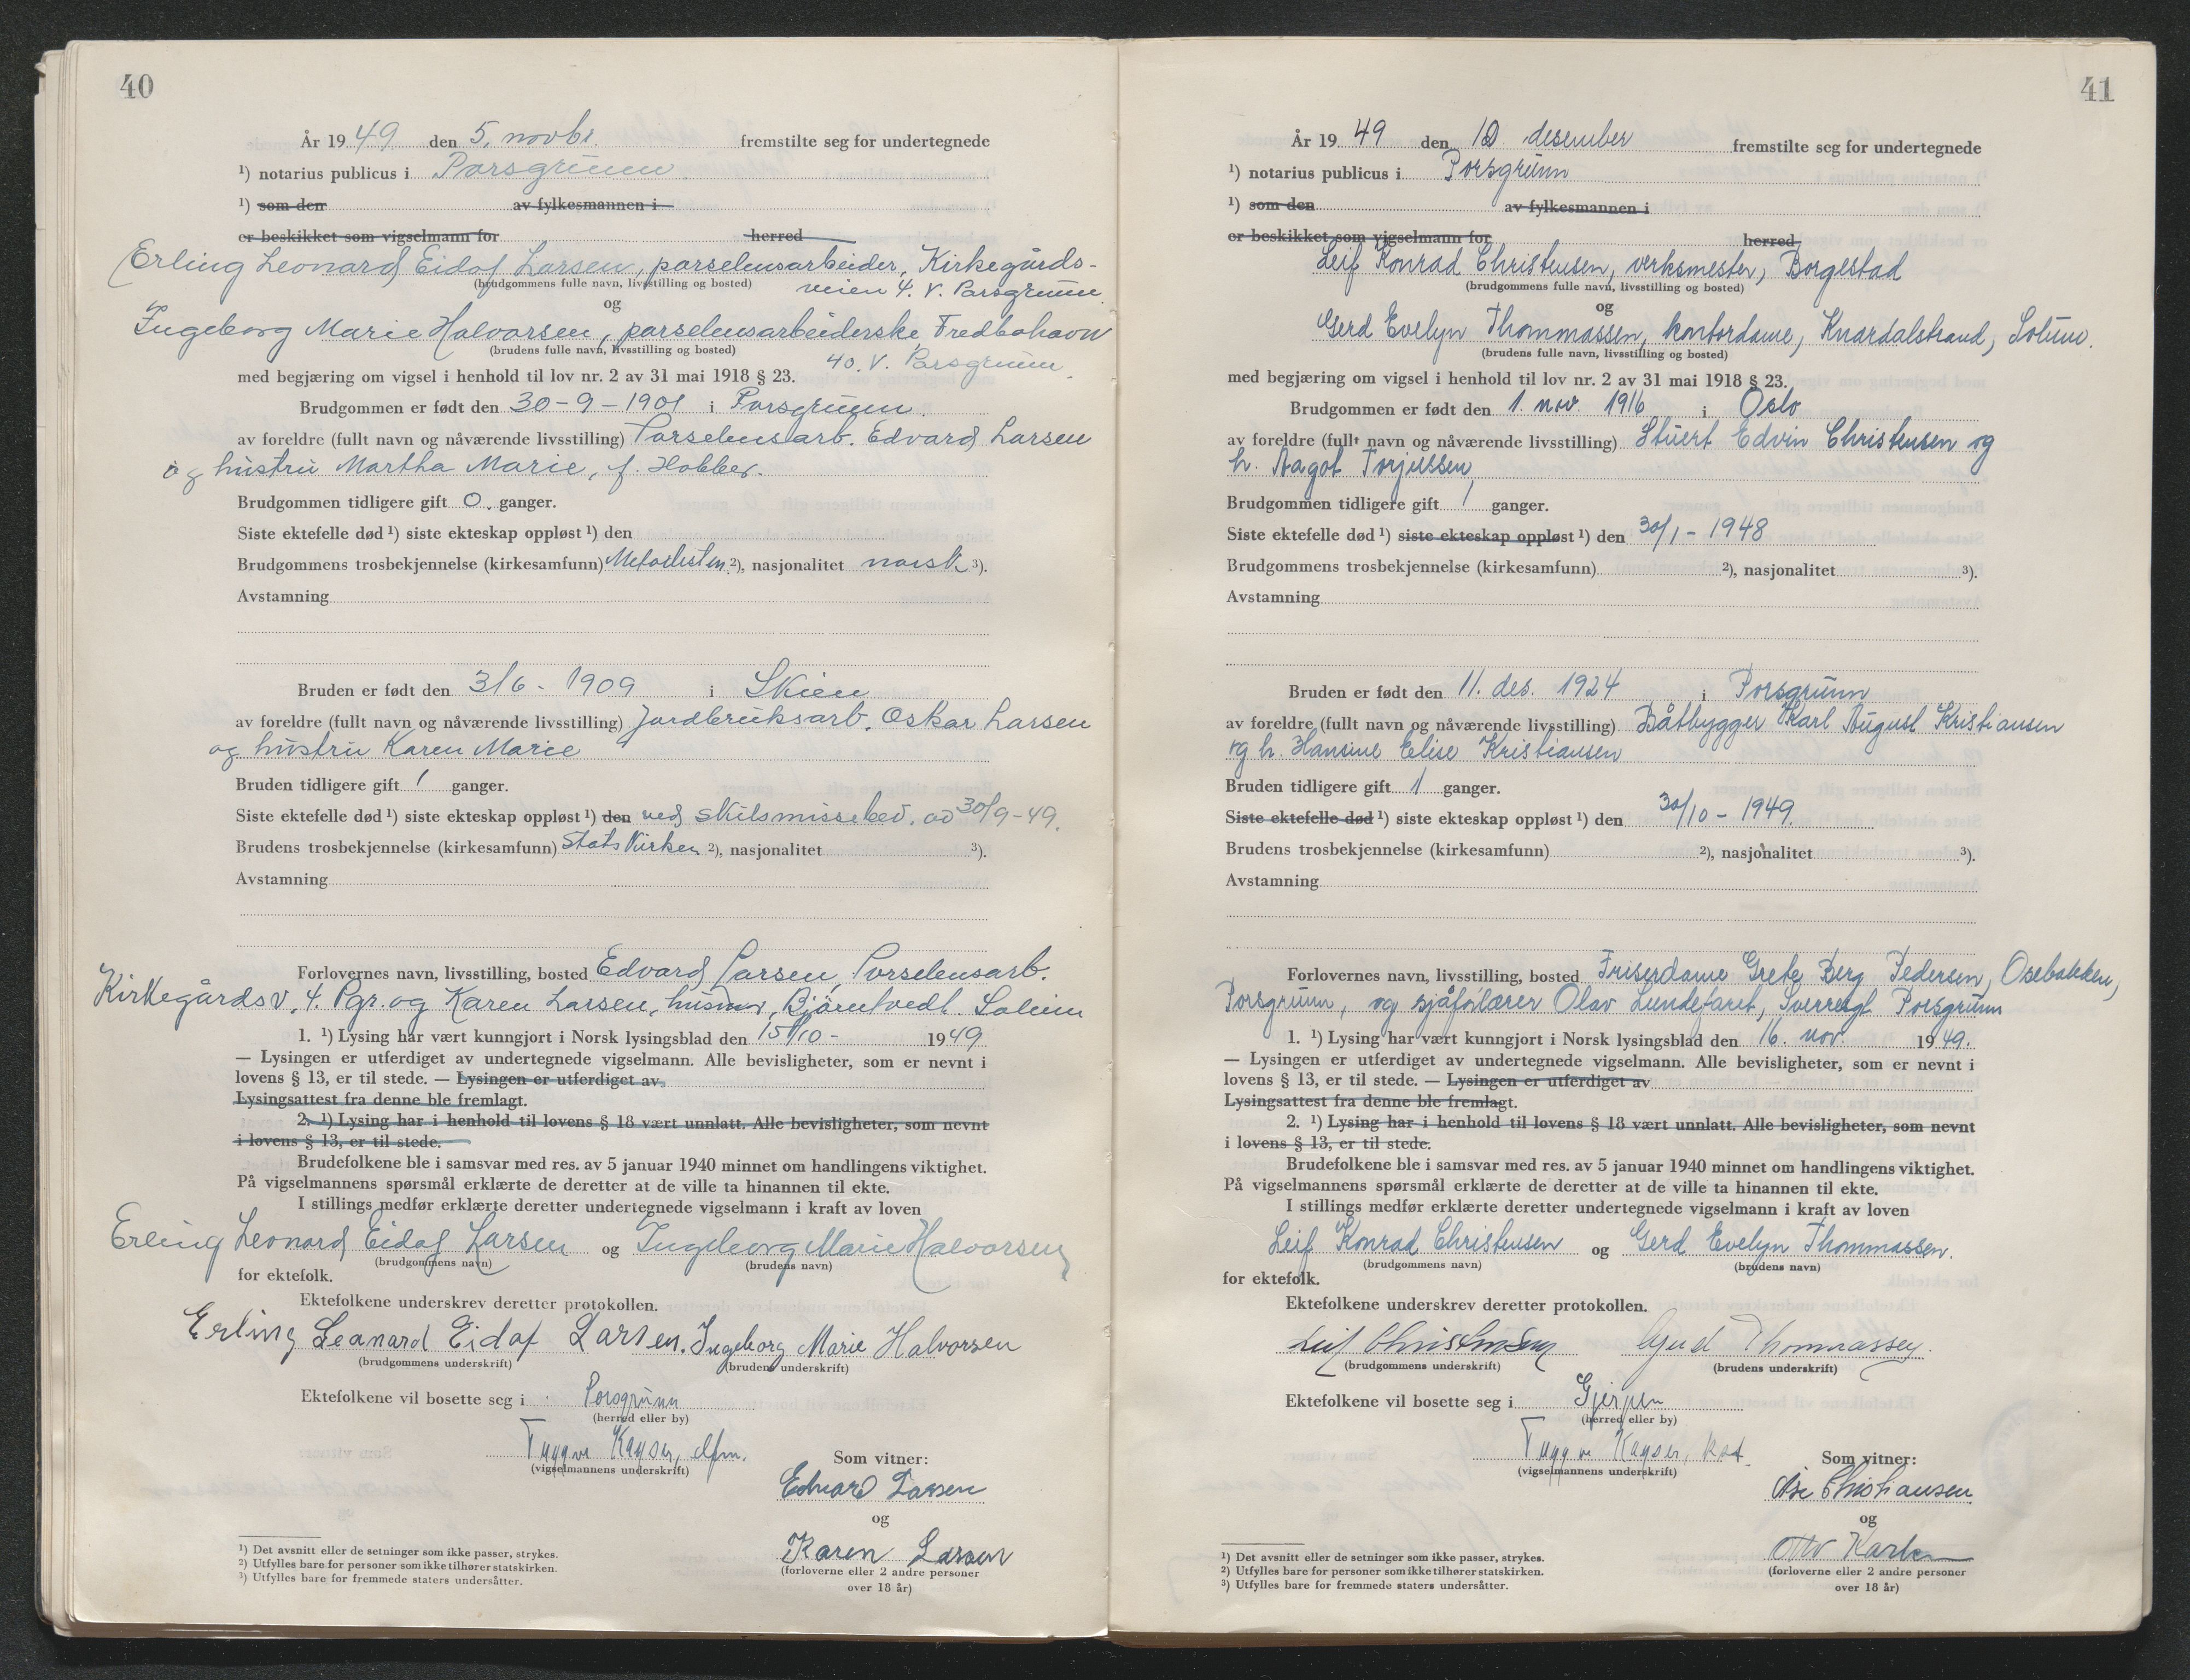 40
År 1949 den 5. novbr. fremstilte seg for undertegnede
¹) notarius publicus i Porsgrunn
¹) som den av fylkesmannen i
er beskikket som vigselmann for herred
Erling Leonard Eidof Larsen, porselensarbeider, Kirkegårds-
(brudgommens fulle navn, livsstilling og bosted) veien 4. V. Porsgrunn.
og
Ingeborg Marie Halvorsen, porselensarbeiderske, Fredbohavn
(brudens fulle navn, livsstilling og bosted) 40. V. Porsgrunn.
med begjæring om vigsel i henhold til lov nr. 2 av 31 mai 1918 § 23.
Brudgommen er født den 30-9-1901 i Porsgrunn.
av foreldre (fullt navn og nåværende livsstilling) Porselensarb. Edvard Larsen
og hustru Martha Marie, f.
Brudgommen tidligere gift 0. ganger.
Siste ektefelle død ¹) siste ekteskap oppløst ¹) den
Brudgommens trosbekjennelse (kirkesamfunn) ²), nasjonalitet norsk ³).
Avstamning
Bruden er født den 3/6 - 1909 i Skien
av foreldre (fullt navn og nåværende livsstilling) Jordbruksarb. Oskar Larsen
og hustru Karen Marie
Bruden tidligere gift 1 ganger.
Siste ektefelle død ¹) siste ekteskap oppløst ¹) den ved skilsmissebev. av 30/9-49.
Brudens trosbekjennelse (kirkesamfunn) Statskirken ²), nasjonalitet ³).
Avstamning
Forlovernes navn, livsstilling, bosted Edvard Larsen, Porselensarb.
Kirkegårdsv. 4. Pgr. og Karen Larsen, husmor, Bjørntvedt. Solum
1. ¹) Lysing har vært kunngjort i Norsk lysingsblad den 15/10 - 1949
— Lysingen er utferdiget av undertegnede vigselmann. Alle bevisligheter, som er nevnt i
lovens § 13, er til stede. — Lysingen er utferdiget av
Lysingsattest fra denne ble fremlagt.
2. ¹) Lysing har i henhold til lovens § 18 vært unnlatt. Alle bevisligheter, som nevnt
i lovens § 13, er til stede.
Brudefolkene ble i samsvar med res. av 5 januar 1940 minnet om handlingens viktighet.
På vigselmannens spørsmål erklærte de deretter at de ville ta hinannen til ekte.
I stillings medfør erklærte deretter undertegnede vigselmann i kraft av loven
Erling Leonard Eidof Larsen og Ingeborg Marie Halvorsen
(brudgommens navn) (brudens navn)
for ektefolk.
Ektefolkene underskrev deretter protokollen.
Erling Leonard Eidof Larsen. Ingeborg Marie Halvorsen
(brudgommens underskrift) (brudens underskrift)
Ektefolkene vil bosette seg i Porsgrunn
(herred eller by)
Tryggve Kayser,
(vigselmannens underskrift)
Som vitner:
Edvard Larsen
og
Karen Larsen
(forloverne eller 2 andre personer
over 18 år)
¹) Det avsnitt eller de setninger som ikke passer, strykes.
²) Utfylles bare for personer som ikke tilhører statskirken.
³) Utfylles bare for fremmede staters undersåtter.
41
År 1949 den 10. desember fremstilte seg for undertegnede
¹) notarius publicus i Porsgrunn
¹) som den av fylkesmannen i
er beskikket som vigselmann for herred
Leif Konrad Christensen, verksmester, Borgestad
(brudgommens fulle navn, livsstilling og bosted)
og
Gerd Evelyn Thommassen, kontordame, Knardalstrand, Solum.
(brudens fulle navn, livsstilling og bosted)
med begjæring om vigsel i henhold til lov nr. 2 av 31 mai 1918 § 23.
Brudgommen er født den 1. nov. 1916 i Oslo
av foreldre (fullt navn og nåværende livsstilling) Stuert Edvin Christensen og
h. Aagot Torjussen
Brudgommen tidligere gift 1 ganger.
Siste ektefelle død ¹) siste ekteskap oppløst ¹) den 30/1 - 1948
Brudgommens trosbekjennelse (kirkesamfunn) ²), nasjonalitet ³).
Avstamning
Bruden er født den 11. des. 1924 i Porsgrunn
av foreldre (fullt navn og nåværende livsstilling) Båtbygger Karl August Kristiansen
og h. Hansine Elise Kristiansen
Bruden tidligere gift 1 ganger.
Siste ektefelle død ¹) siste ekteskap oppløst ¹) den 30/10 - 1949.
Brudens trosbekjennelse (kirkesamfunn) ²), nasjonalitet ³).
Avstamning
Forlovernes navn, livsstilling, bosted Friserdame Grete Berg Pedersen, Osebakken,
Porsgrunn, og sjåførlærer Olav Lundefaret, Sverresgt. Porsgrunn
1. ¹) Lysing har vært kunngjort i Norsk lysingsblad den 16. nov. 1949.
— Lysingen er utferdiget av undertegnede vigselmann. Alle bevisligheter, som er nevnt i
lovens § 13, er til stede. — Lysingen er utferdiget av
Lysingsattest fra denne ble fremlagt.
2. ¹) Lysing har i henhold til lovens § 18 vært unnlatt. Alle bevisligheter, som nevnt
i lovens § 13, er til stede.
Brudefolkene ble i samsvar med res. av 5 januar 1940 minnet om handlingens viktighet.
På vigselmannens spørsmål erklærte de deretter at de ville ta hinannen til ekte.
I stillings medfør erklærte deretter undertegnede vigselmann i kraft av loven
Leif Konrad Christensen og Gerd Evelyn Thommassen.
(brudgommens navn) (brudens navn)
for ektefolk.
Ektefolkene underskrev deretter protokollen.
Leif Christensen Gerd Thommassen.
(brudgommens underskrift) (brudens underskrift)
Ektefolkene vil bosette seg i Gjerpen
(herred eller by)
Tryggve Kayser,
(vigselmannens underskrift)
Som vitner:
Christiansen
og
Otto
(forloverne eller 2 andre personer
over 18 år)
¹) Det avsnitt eller de setninger som ikke passer, strykes.
²) Utfylles bare for personer som ikke tilhører statskirken.
³) Utfylles bare for fremmede staters undersåtter.